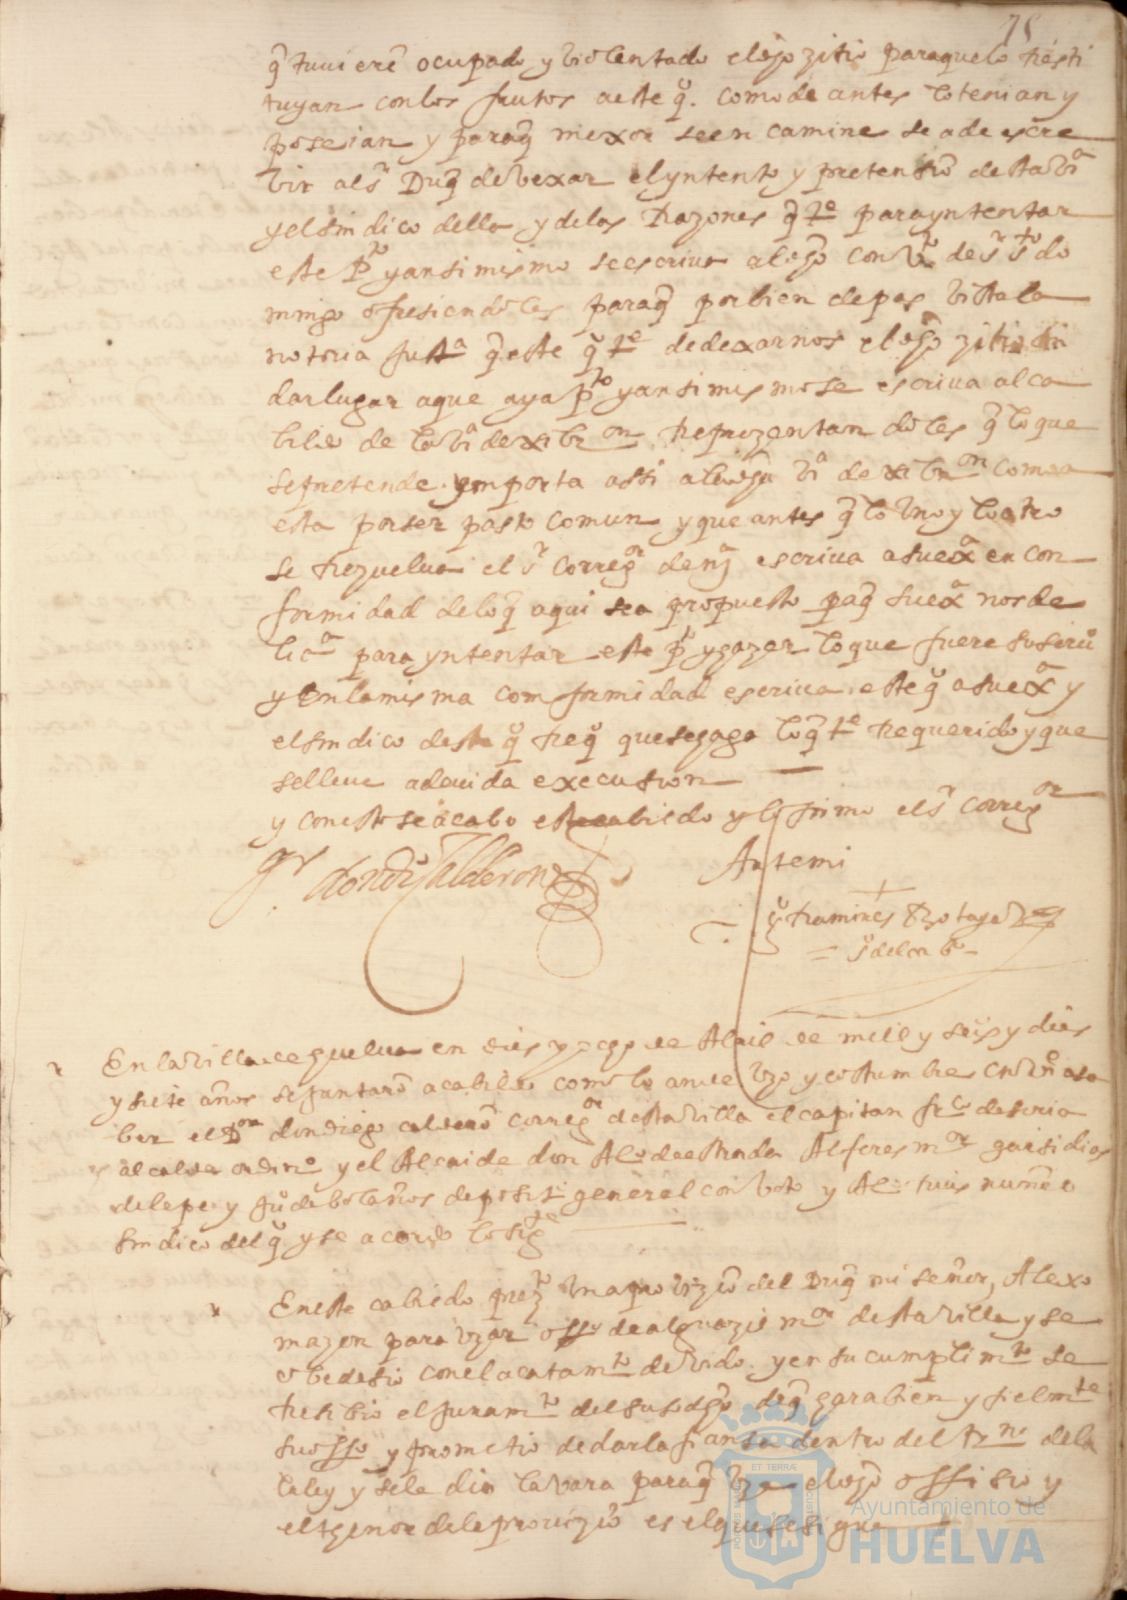 75
q̃ tuvierẽ ocupado y violentado el dhõ zitio para que lo rresti
tuyan con los frutos a este q̃º. como de antes lo tenian y
poseian y paraq̃ mexor se en camine se a de escre
bir al sr Duq̃ de bexar el yntento y pretensiõ desta bª
y el sindico della y de las Razones q̃ te para yntentar
este Pto y ansimismo se escriva al dhõ conbto de sr sto do
mingo ofresiendoles paraq̃ por bien de pas bista la
notoria justª q̃ este q̃º te de dexarnos el dhõ zitio sin
dar lugar a que aya pto y ansimismo se escriva al ca
bildo de la bª de xibron Reprezentandoles q̃ lo que
se pretende ymporta assi a la dhã bª de xibron como a
esta por ser pasto comun y que antes q̃ lo uno y lo otro
se rrezuelva el sr Corregor de nª escriva a su exª en con
formidad de lo q̃ aqui sea propuesto paq̃ su exª nos de
licª para yntentar este pto y hazer lo que fuere su serviº
y En la misma comformidad escriva este q̃º a su exª y
el sindico deste q̃º rreqº que se haga lo q̃ te rrequerido y que
se lleve a devida execusion
y con esto se acabo este cabildo y lo firmo el sr Corregor
don diº Calderon
Antemi
Ramires
sº del cabº
En la villa de guelva en dies y ocho de Abril de mill y seis y dies
y siete años se juntarõ a cabildo como lo an de uzo y costumbre combiene a sa
ber el Dor don diego calderõ corregor desta villa el capitan frco de soria
alcalde ordinº y el Alcaide don Alº de estrada Alferes mor garsi dias
de lepe y juº de bolaños depositº general con boto y Alº ruis nuñes
sindico del q̃º y se acordo lo sigte
En este cabildo prezto una proviziõ del Duq̃ mi señor, Alexo
mazon para uzar offº de alguazil mor desta villa y se
obedesio con el acatamto devido y en su cumplimto se
resibio el juramto del susodhõ deq̃ hara bien y fielmte
su offº y prometio de dar la fiansa dentro del trno de la
la ley y se le dio la vara paraq̃ uze el dhõ offisio y
el thenor de la proviziõ es el que se sigue
ET TERRÆ
Ayuntamiento de
HUELVA